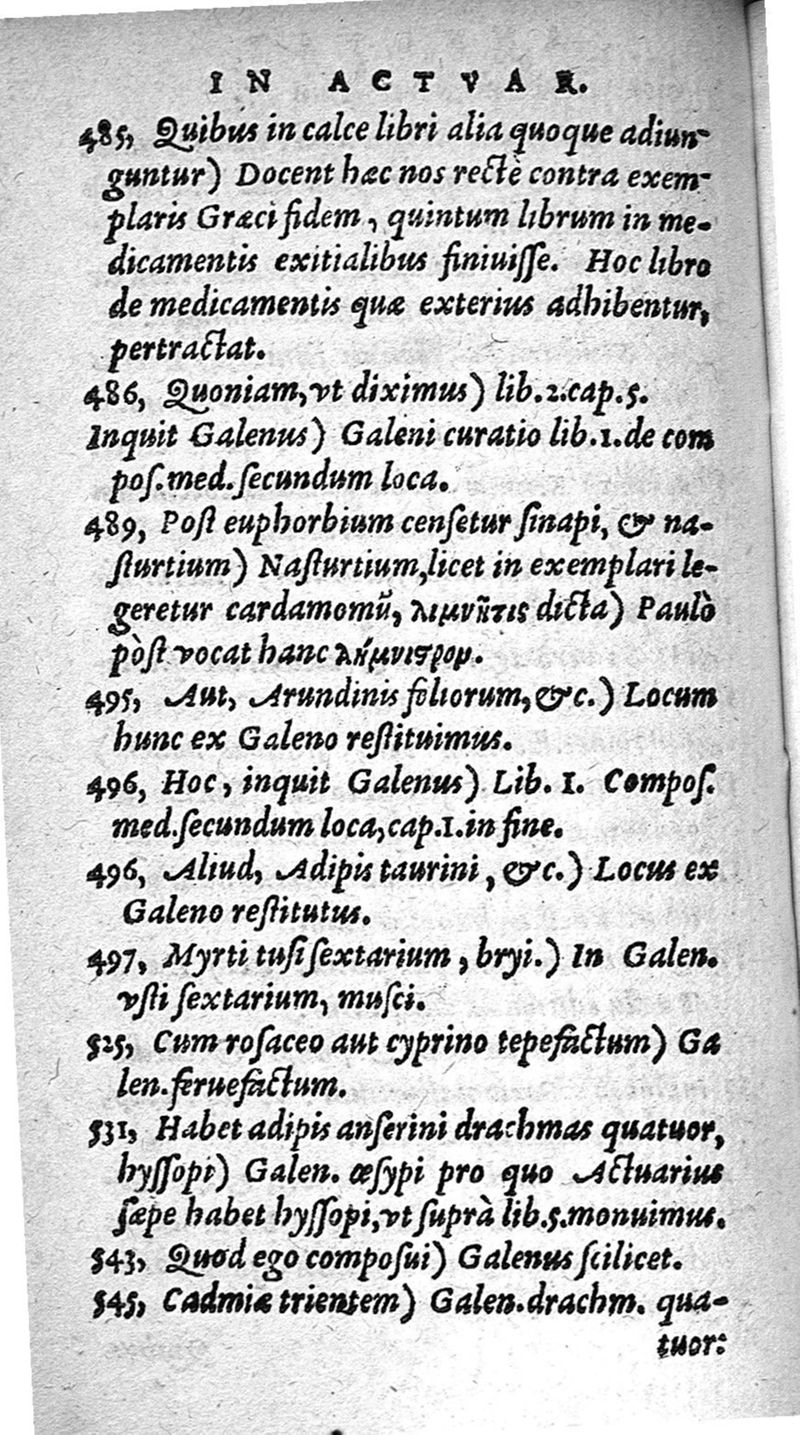 IN ACTVAR.
485, Quibus in calce libri alia quoque adiun-
guntur) Docent hæc nos rectè contra exem-
plaris Græci fidem, quintum librum in me-
dicamentis exitialibus finiuiſſe. Hoc libro
de medicamentis quæ exterius adhibentur,
pertractat.
486, Quoniam, vt diximus) lib.2.cap.5.
Inquit Galenus) Galeni curatio lib.1.de com
poſ.med.ſecundum loca.
489, Poſt euphorbium cenſetur ſinapi, & na-
ſturtium) Naſturtium, licet in exemplari le-
geretur cardamomũ, λιμνῆτις dicta) Paulò
pòſt vocat hanc λήμνιστρομ.
495, Aut, Arundinis foliorum, &c.) Locum
hunc ex Galeno reſtituimus.
496, Hoc, inquit Galenus) Lib. 1. Compoſ.
med.ſecundum loca, cap.1.in fine.
496, Aliud, Adipis taurini, &c.) Locus ex
Galeno reſtitutus.
497, Myrti tuſi ſextarium, bryi.) In Galen.
vſti ſextarium, muſci.
525, Cum roſaceo aut cyprino tepefactum) Ga
len.feruefactum.
531, Habet adipis anſerini drachmas quatuor,
hyſſopi) Galen. œſypi pro quo Actuarius
ſæpe habet hyſſopi, vt ſuprà lib.5.monuimus.
543, Quod ego compoſui) Galenus ſcilicet.
545, Cadmiæ trientem) Galen.drachm. qua-
tuor: